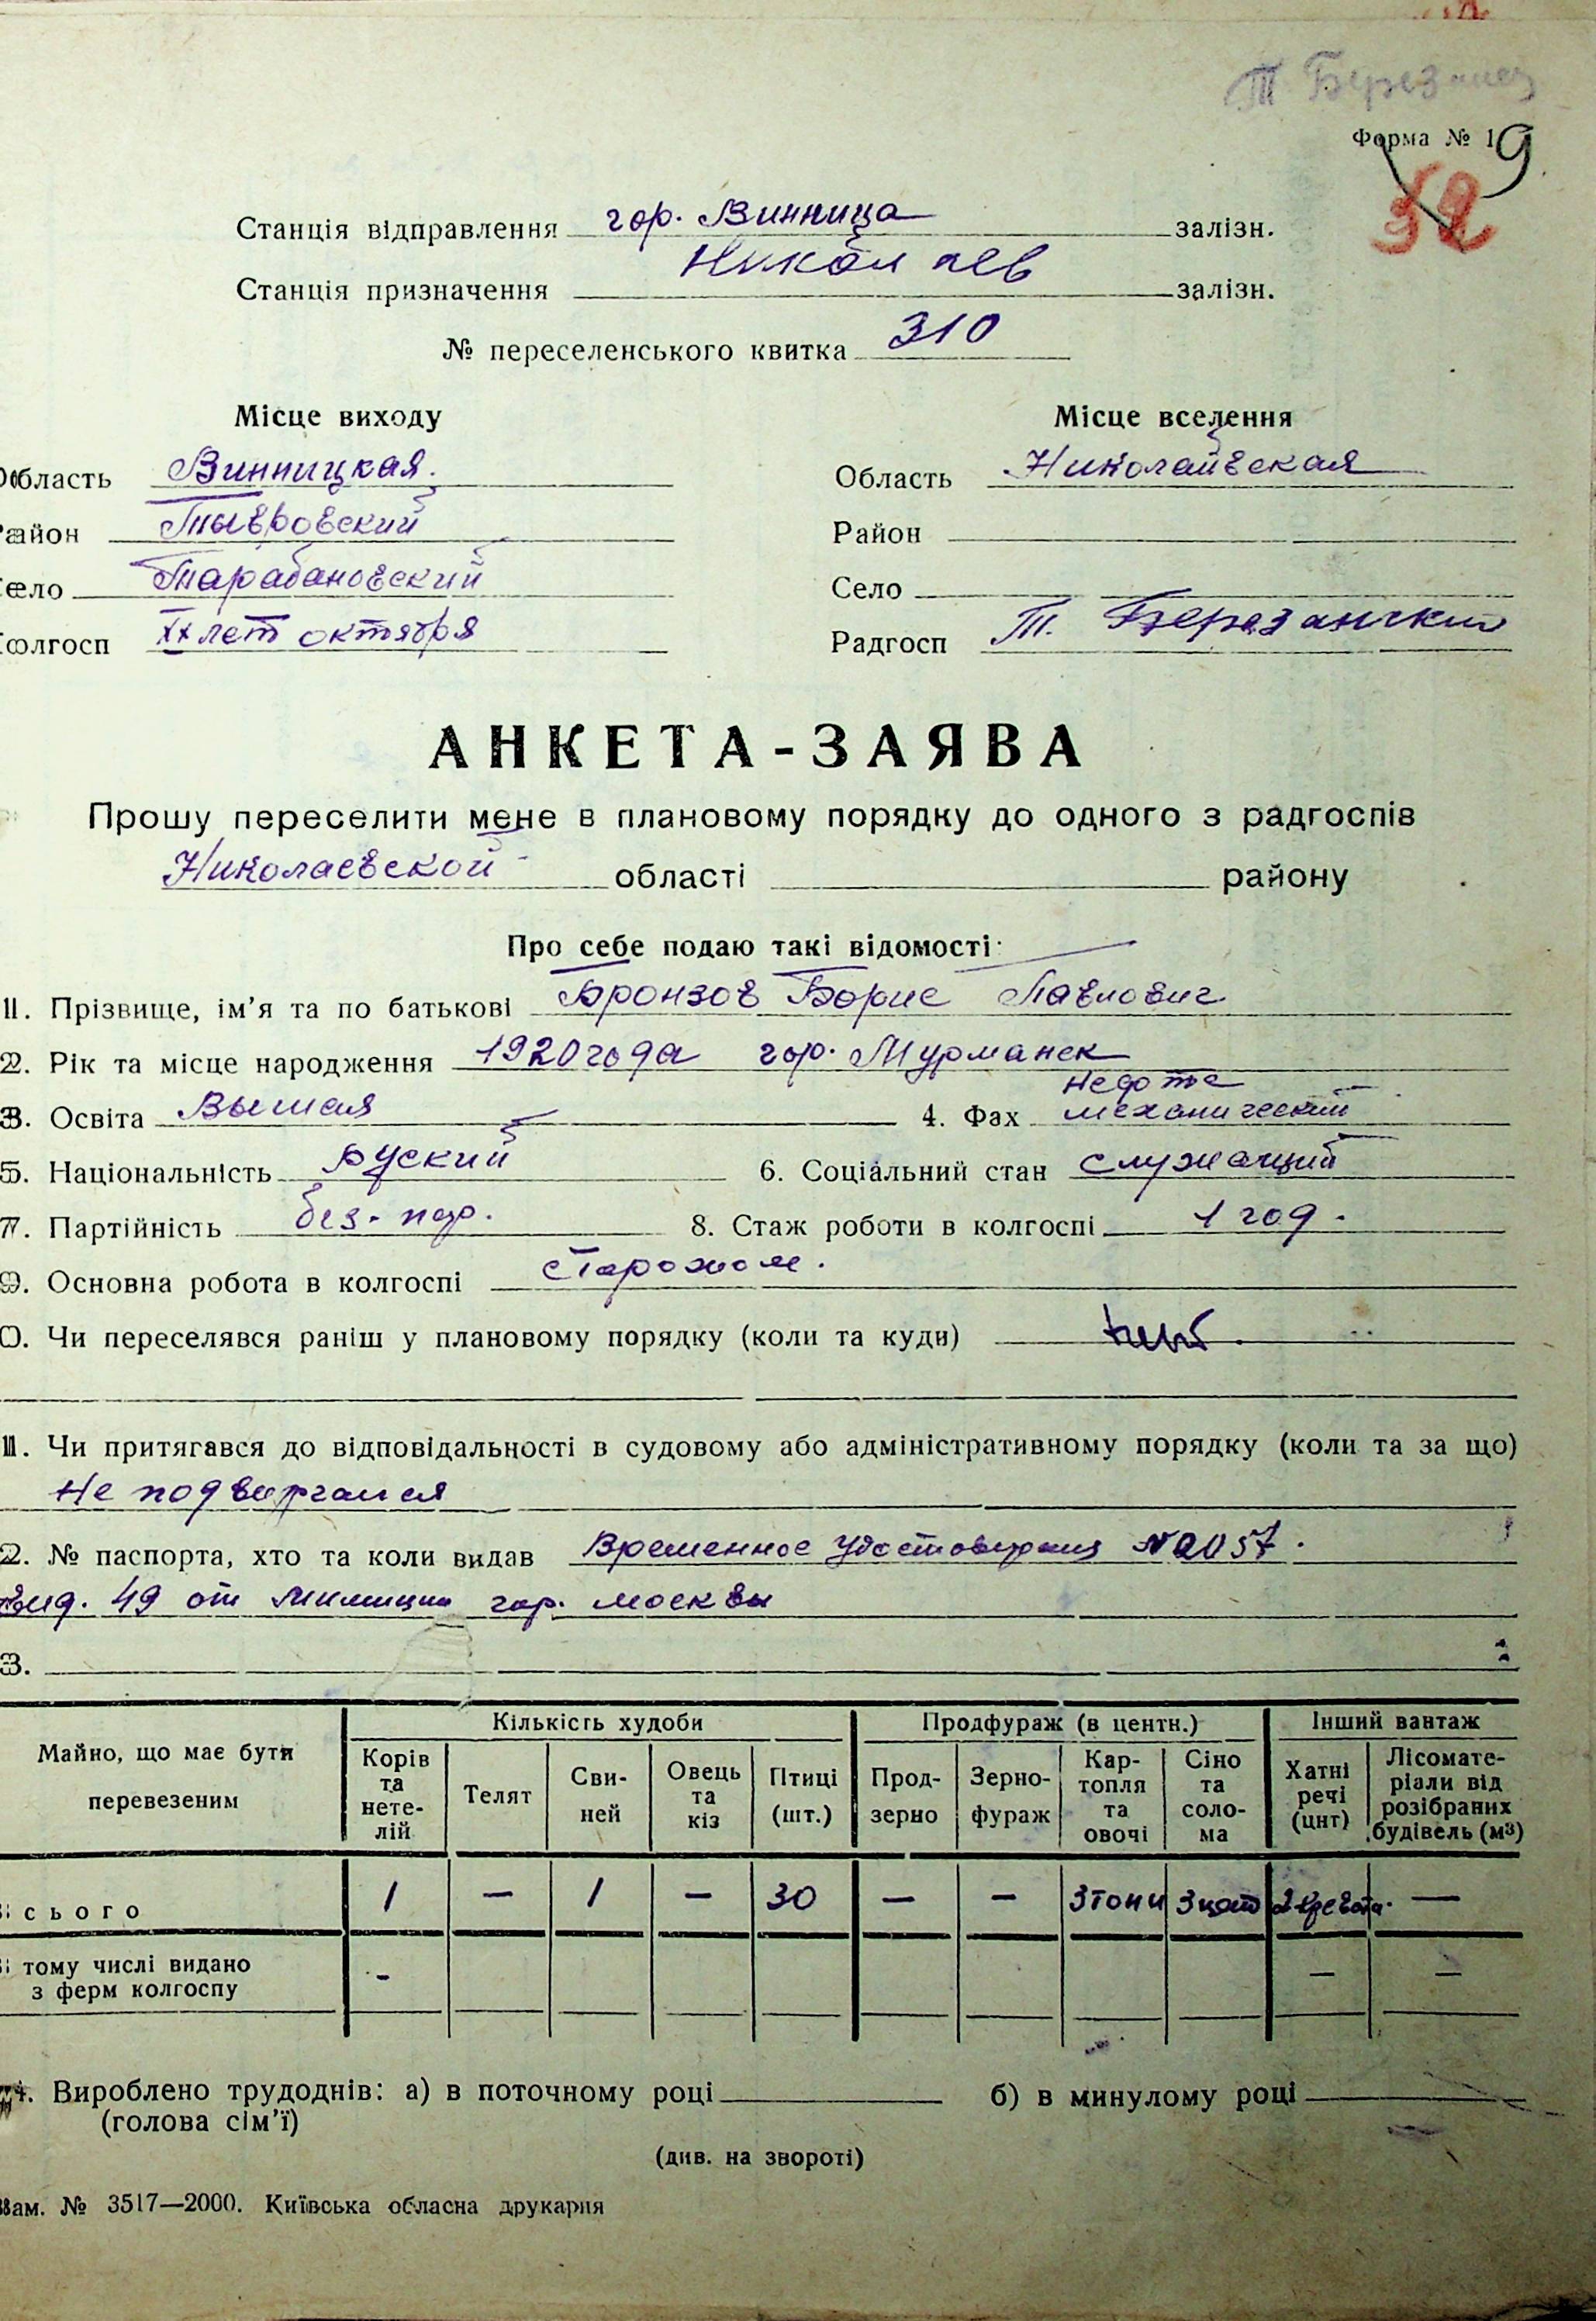 Т Березанск
Форма № 19
32
Станція відправлення гор. Винница залізн.
Станція призначення Николаев залізн.
№ переселенського квитка 310
Місце виходу Місце вселення
Область Винницкая. Область Николаевская
Район Тывровский Район
Село Тарабановский Село
Колгосп ХХ лет октября Радгосп Т. Березанский
АНКЕТА-ЗАЯВА
Прошу переселити мене в плановому порядку до одного з радгоспів
Николаевской області району
Про себе подаю такі відомості
1. Прізвище, ім'я та по батькові Бронзов Борис Павлович
2. Рік та місце народження 1920 года гор. Мурманск
3. Освіта Высшая 4. Фах механический
5. Національність Руский 6. Соціальний стан служащий
7. Партійність без-пар. 8. Стаж роботи в колгоспі 1 год.
9. Основна робота в колгоспі сторожом.
0. Чи переселявся раніш у плановому порядку (коли та куди) нет.
11. Чи притягався до відповідальності в судовому або адміністративному порядку (коли та за що)
Не подвергался
2. № паспорта, хто та коли видав Временное удостоверения №2057.
Выд. 49 от Милиции гор. Москвы
3.
Кількість худоби Продфураж (в центн.) Інший вантаж
Майно, що має бути перевезеним Корів та нетелій Телят Свиней Овець та кіз Птиці (шт.) Продзерно Зернофураж Картопля та овочі Сіно та солома Хатні речі (цнт) Лісоматеріали від розібраних будівель (м³)
Всього 1 — 1 — 30 — — 3 тони 3 цент 2 кровати. —
В тому числі видано - — —
з ферм колгоспу
4. Вироблено трудоднів: а) в поточному році б) в минулому році
(голова сім'ї)
(див. на звороті)
Зам. № 3517—2000. Київська обласна друкарня